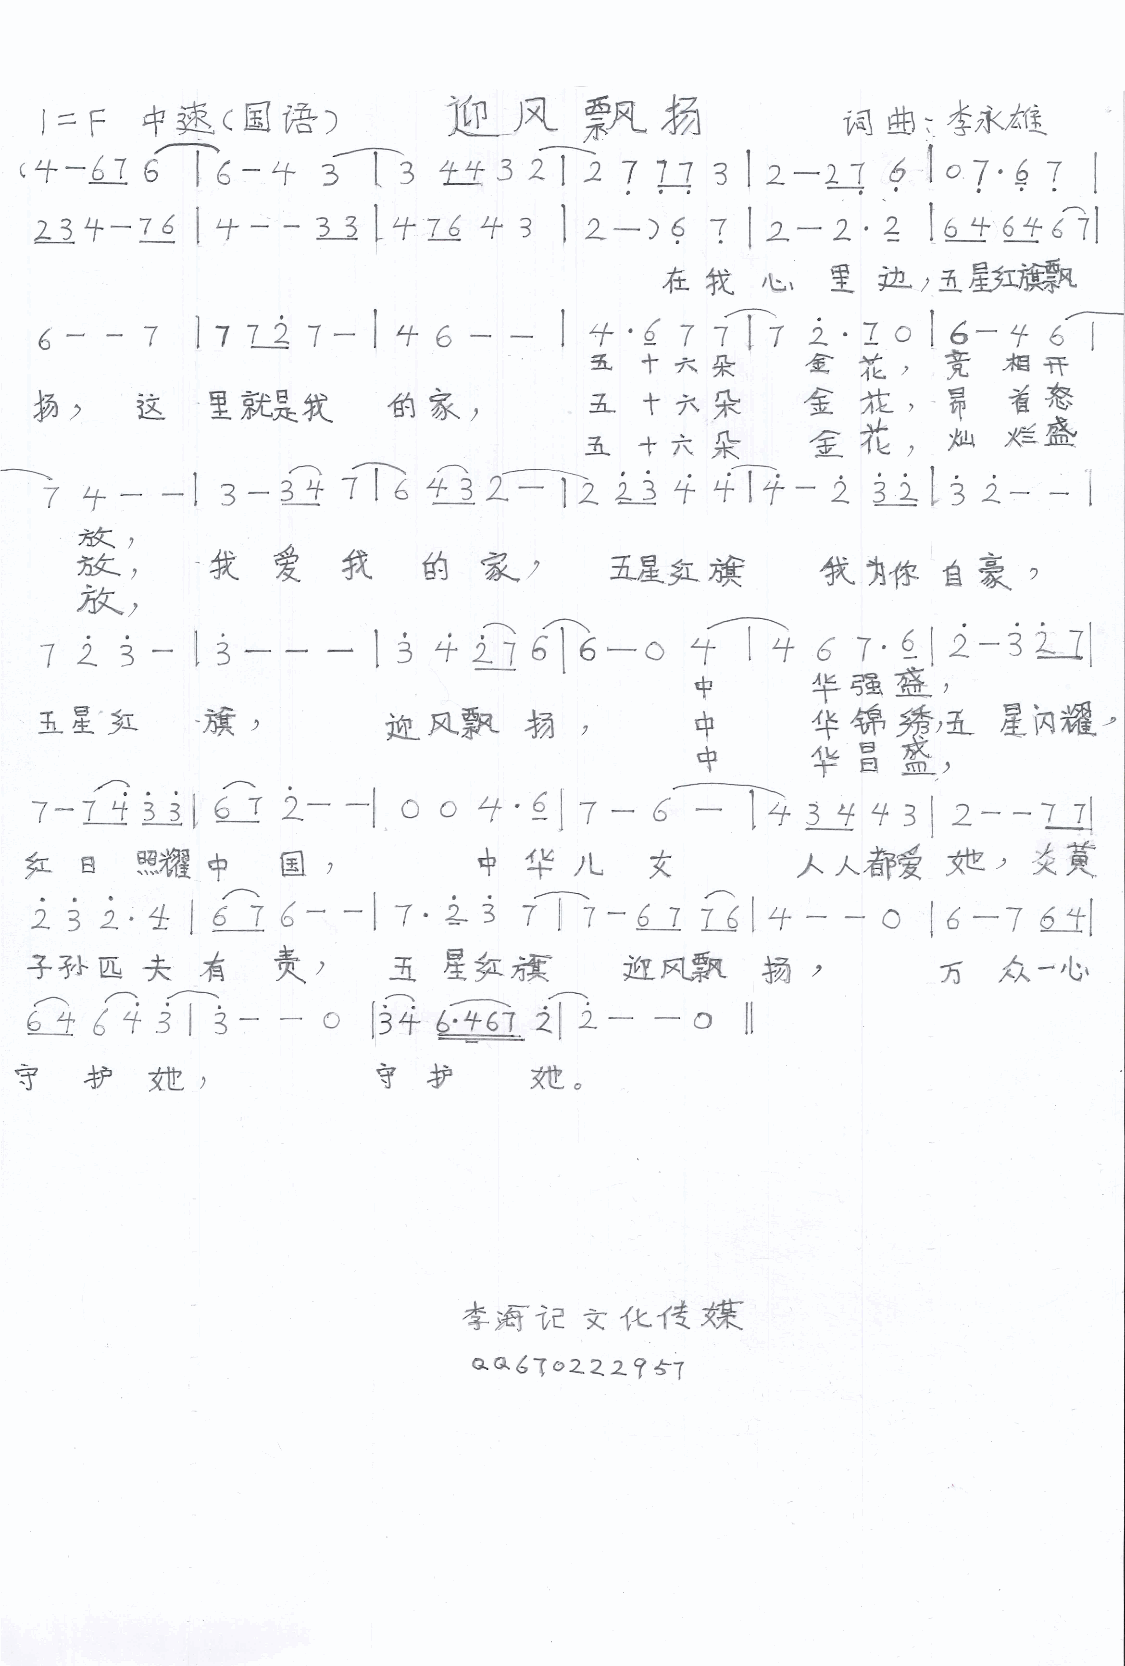 1=F 中速(国语) 迎风飘扬 词曲:李永雄
(4-67 6 | 6-4 3 | 3 44 3 2 | 2 7 77 3 | 2-27 6 | 0 7·6 7 |
234-76 | 4--33 | 476 4 3 | 2-)6 7 | 2-2·2 | 64 64 67 |
在我心里边,五星红旗飘
6--7 | 7 72 7- | 4 6-- | 4·6 7 7 | 7 2·7 0 | 6-4 6 |
五十六朵 金花,竞相开
扬,这里就是我的家, 五十六朵 金花,昂首怒
五十六朵 金花,灿烂盛
7 4-- | 3-34 7 | 6 43 2- | 2 23 4 4 | 4-2 32 | 3 2-- |
放,
放, 我爱我的家, 五星红旗 我为你自豪,
放,
7 2 3- | 3--- | 3 4 27 6 | 6-0 4 | 4 6 7·6 | 2-3 27 |
中 华强盛,
五星红旗, 迎风飘扬, 中 华锦绣,五星闪耀,
中 华昌盛,
7-74 33 | 67 2-- | 0 0 4·6 | 7-6- | 4 34 4 3 | 2--77 |
红日照耀中国, 中华儿女 人人都爱她,炎黄
2 3 2·4 | 67 6-- | 7·2 3 7 | 7-67 76 | 4--0 | 6-7 64 |
子孙匹夫有责, 五星红旗 迎风飘扬, 万众一心
64 6 4 3 | 3--0 | 34 6·467 2 | 2--0 ‖
守护她, 守护她。
李海记文化传媒
QQ670222957